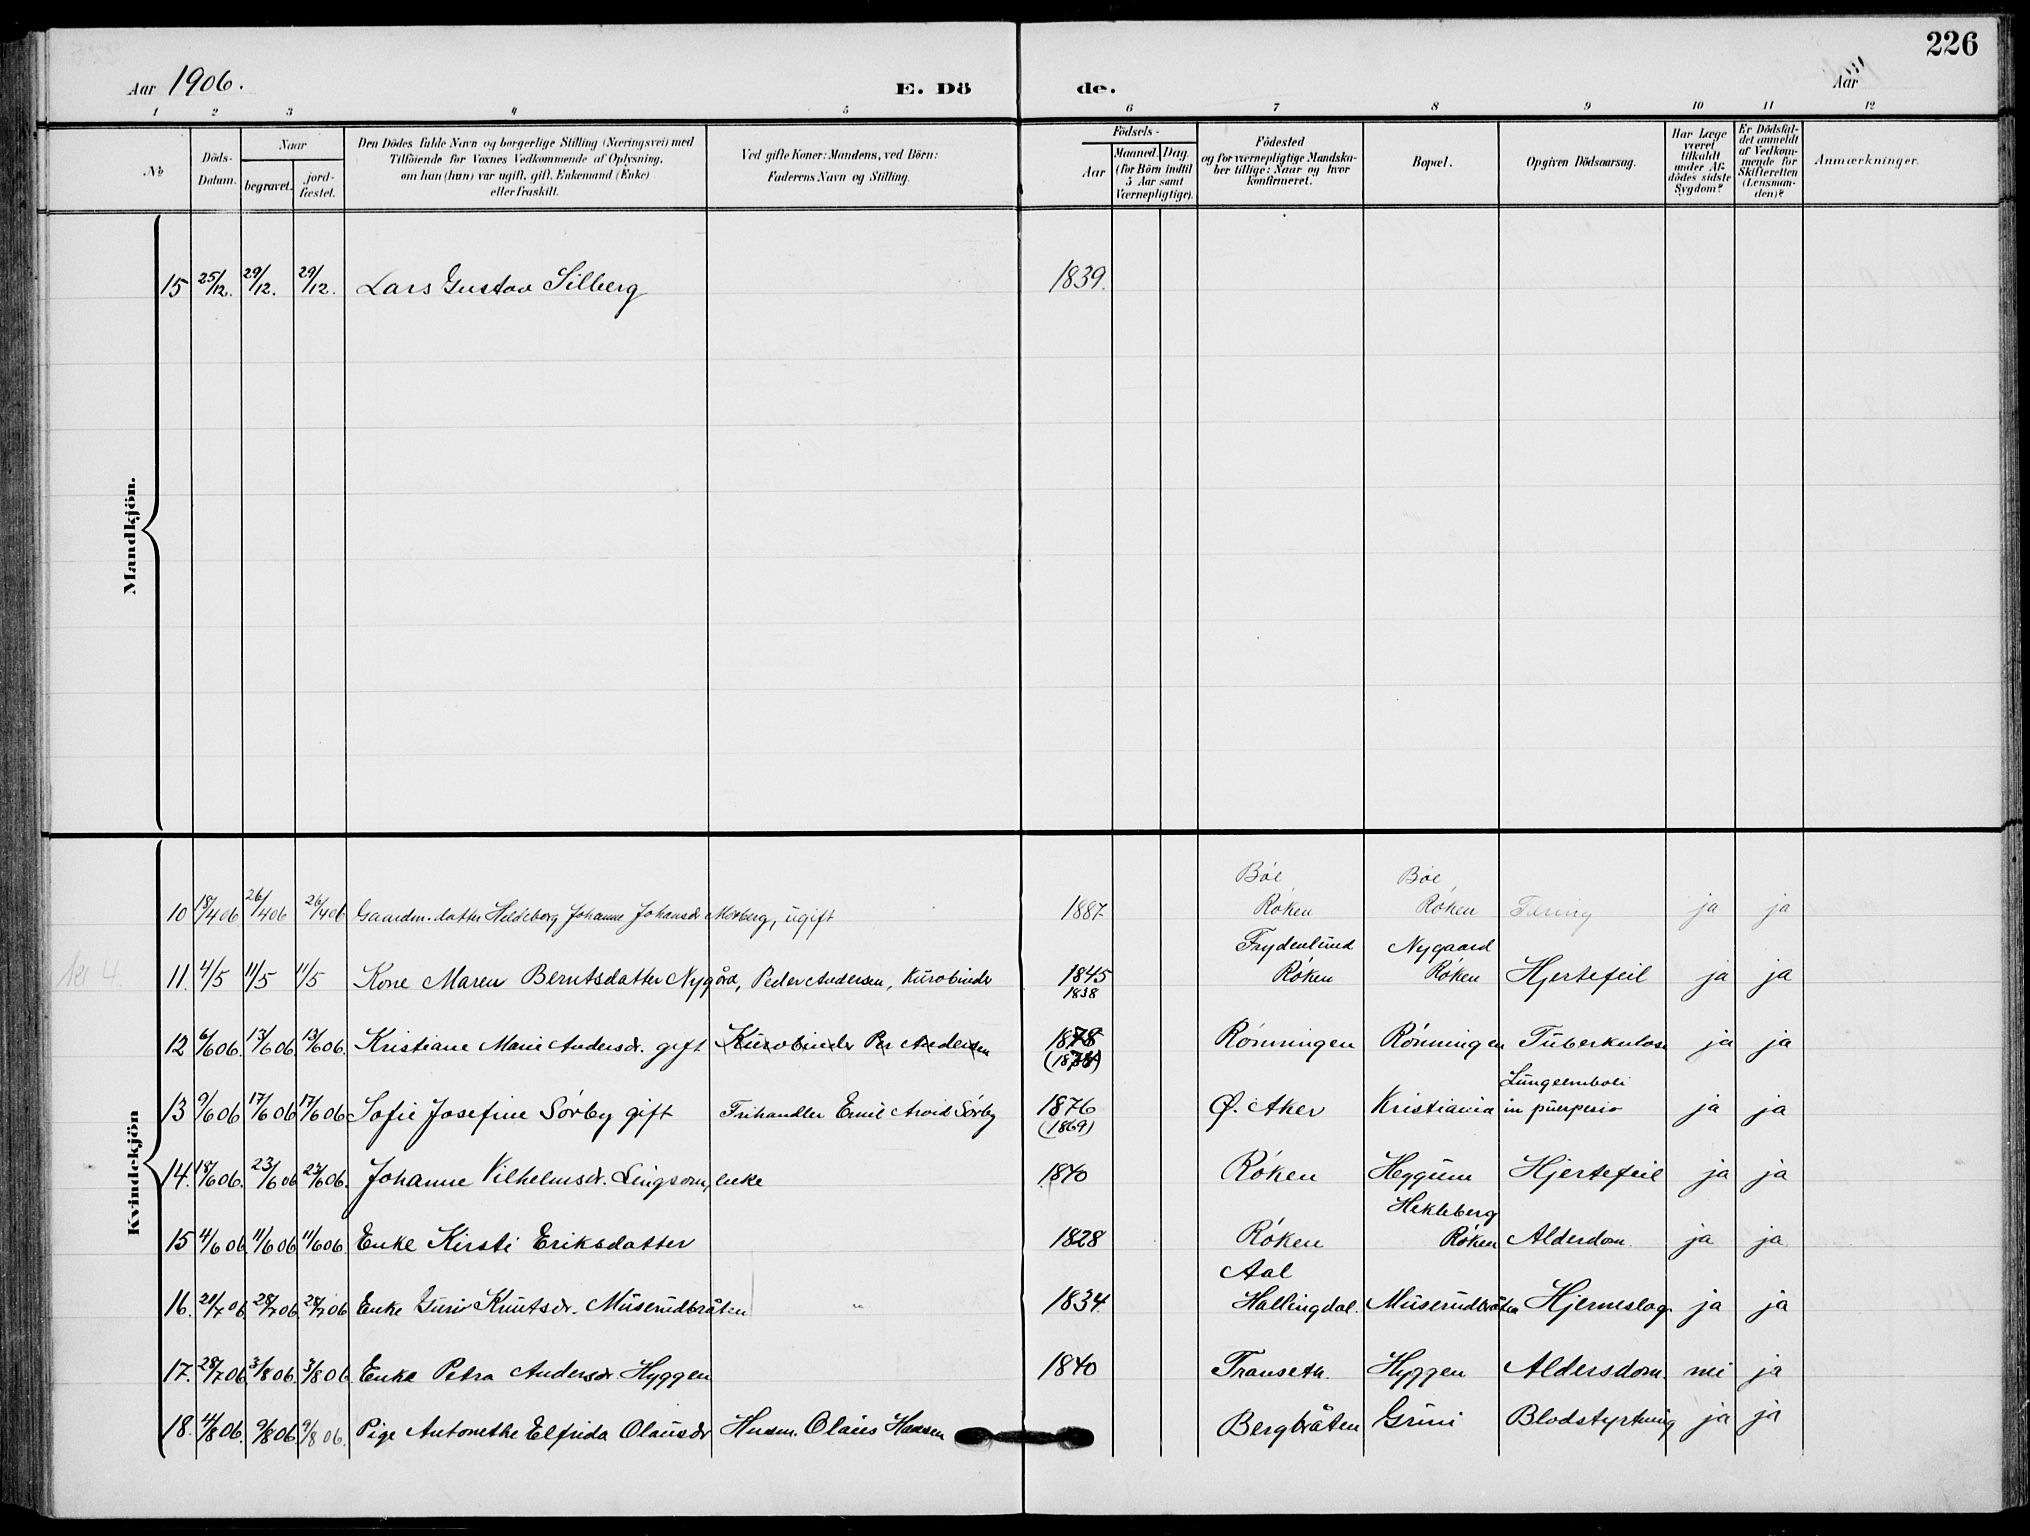 226
Aar 1906.
E. Dö de.
Aar
1 2 3 4 5 6 7 8 9 10 11 12
№
Döds-Datum.
Naar
begravet.
jord-fæstet.
Den Dödes fulde Navn og borgerlige Stilling (Næringsvei) med
Tilföiende for Voxnes Vedkommende af Oplysning,
om han (hun) var ugift, gift, Enkemand (Enke)
eller fraskilt.
Ved gifte Koner: Mandens, ved Börn:
Faderens Navn og Stilling.
Födsels-
Aar
Maaned. Dag.
(for Börn indtil
5 Aar samt
Værnepligtige).
Födested
og for værnepligtige Mandska-
ber tillige: Naar og hvor
konfirmeret.
Bopæl.
Opgiven Dödsaarsag.
Har Læge
været
tilkaldt
under Af-
dödes sidste
Sygdom?
Er Dödsfal-
det anmeldt
af Vedkom-
mende for
Skifteretten
(Lensman-
den)?
Anmærkninger.
Mandkjön.
15 25/12. 29/12. 29/12. Lars Gustav Silberg 1839.
Kvindekjön
Böe Böe
10 18/4 06 26/4 06 26/4 06 Gaardm. datter Hildeborg Johanne Johansdr Morberg, ugift 1887 Röken Röken Tæring ja ja
Frydenlund Nygaard
11. 4/5 11/5 11/5 Kone Maren Berntsdatter Nygård, Peder Andersen, Kurvbinder 1845 Röken Röken Hjertefeil ja ja
1838
12 6/6 06. 13/6 06 13/6 06. Kristiane Marie Andersdr. gift Kurvbinder Per Andersen 1878 Rönningen Rönningen Tuberkulose ja ja
(1838)
Lungeemboli
13 9/6 06 17/6 06 17/6 06 Sofie Josefine Sörby gift Frihandler Emil Arvid Sörby 1876 Ø. Aker Kristiania in puerperio ja ja
(1869)
14. 18/6 06. 23/6 06 23/6 06. Johanne Vilhelmsdr. Lingsom, enke 1840 Röken Heggum Hjertefeil ja ja
Hekleberg
15 4/6 06 11/6 06 11/6 06. Enke Kirsti Eriksdatter 1828 Röken Röken Alderdom. ja ja
Aal
16. 21/7 06. 28/7 06. 28/7 06 Enke Guri Knutsdr. Muserudbråten " 1834. Hallingdal. Muserudbråten Hjerneslag ja ja
17. 28/7 06. 3/8 06. 3/8 06. Enke Petra Andersdr. Hyggen 1840 Transeth. Hyggen Aldersdom. nei ja
18. 4/8 06. 9/8 06. 9/8 06. Pige Antonethe Elfrida Olausdr Husm. Olaus Hansen Bergbråten Grini Blodstyrtning ja ja